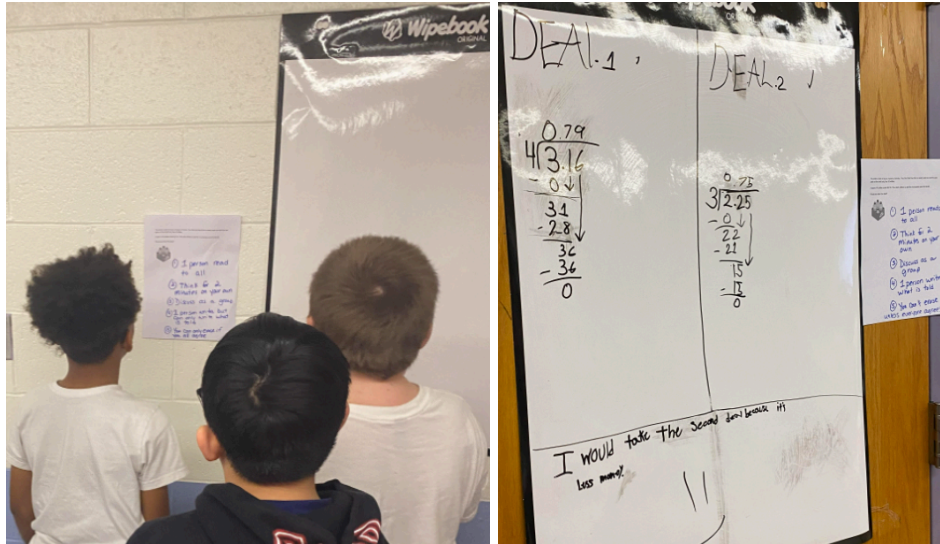 Wipebook
ORIGINAL
① 1 person read
to all
② Think for 2
minutes on your own
③ Discuss as a group
④ 1 person write but
can only write what
is told
⑤ You can only erase if
you all agree
DEAL.1
0.79
4 3.16
- 0
31
- 28
36
- 36
0
DEAL.2
0.75
3 2.25
- 0
22
- 21
15
- 15
0
I would take the second deal because it's
less money
① 1 person read
to all
② Think for 2
minutes on your
own
③ Discuss as a
group
④ 1 person write
what is told
⑤ You can't erase